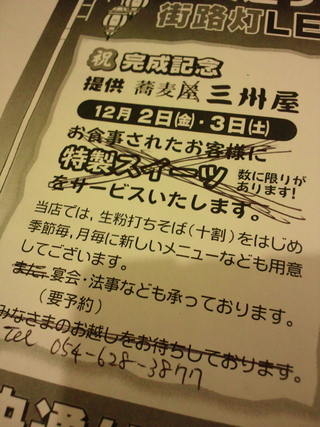 街路灯LE
祝 完成記念
提供 蕎麦屋 三州屋
12月 2日(金)・3日(土)
お食事されたお客様に
特製スイーツ 数に限りが
あります!
をサービスいたします。
当店では,生粉打ちそば(十割)をはじめ
季節毎,月毎に新しいメニューなども用意
してございます。
また,宴会・法事なども承っております。
(要予約)
みなさまのお越しをお待ちしております。
Tel 054-628-3877